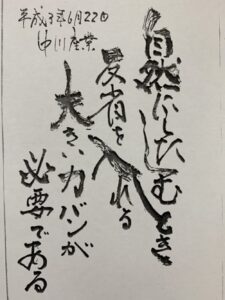 平成3年6月22日
中川産業
自然にしたしむとき
反省を入れる
大きいカバンが
必要である